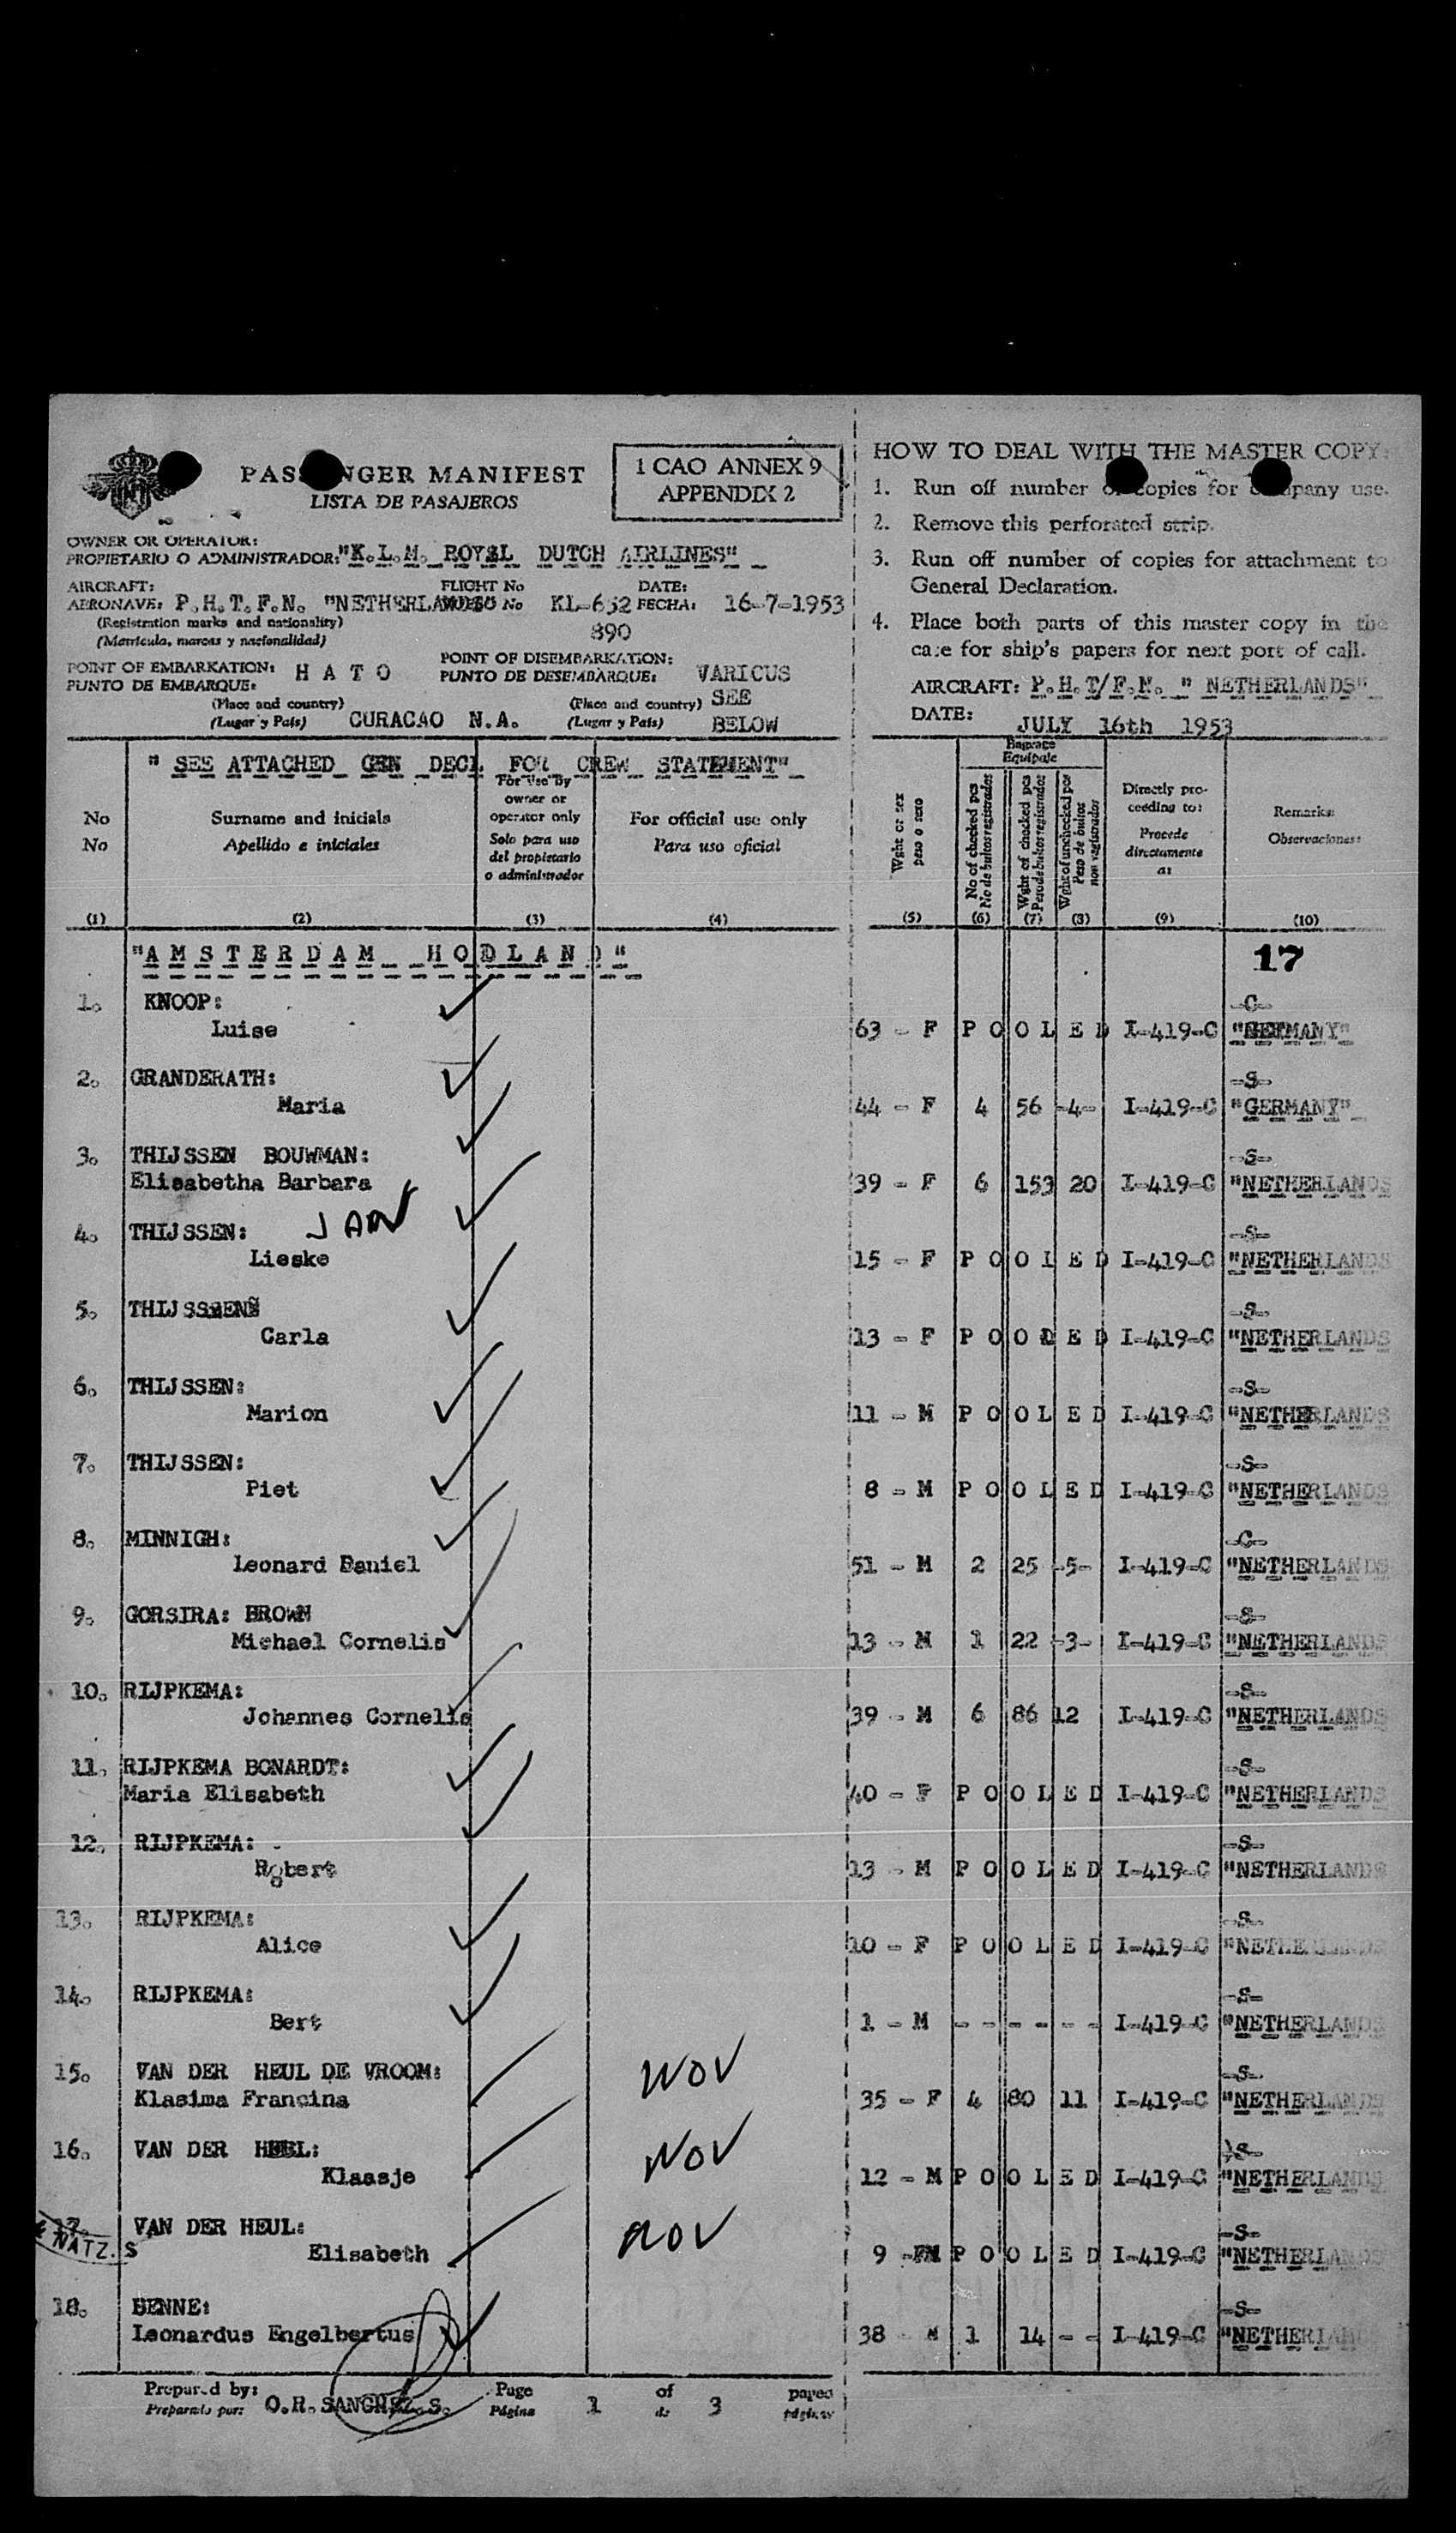 PASSENGER MANIFEST
LISTA DE PASAJEROS
1 CAO ANNEX 9
APPENDIX 2
OWNER OR OPERATOR:
PROPIETARIO O ADMINISTRADOR: "K.L.M. ROYAL DUTCH AIRLINES"
AIRCRAFT: FLIGHT No DATE:
AERONAVE: P.H.T.F.N. "NETHERLANDS" No KL-652 FECHA: 16-7-1953
(Registration marks and nationality)
(Matricula, marcas y nacionalidad) 890
POINT OF EMBARKATION: H A T O POINT OF DISEMBARKATION: VARICUS
PUNTO DE EMBARQUE: PUNTO DE DESEMBARQUE: SEE
(Place and country) (Place and country)
(Lugar y País) CURACAO N.A. (Lugar y País) BELOW
HOW TO DEAL WITH THE MASTER COPY:
1. Run off number of copies for company use.
2. Remove this perforated strip.
3. Run off number of copies for attachment to
General Declaration.
4. Place both parts of this master copy in the
case for ship's papers for next port of call.
AIRCRAFT: P.H.T/F.N. " NETHERLANDS"
DATE: JULY 16th 1953
" SEE ATTACHED GEN DECL FOR CREW STATEMENT"
No
No
Surname and initials
Apellido e iniciales
For use by
owner or
operator only
Solo para uso
del propietario
o administrador
For official use only
Para uso oficial
Wght or sex
peso o sexo
Baggage
Equipaje
No of checked pcs
No de bultos registrados
Wght of checked pcs
Peso de bultos registrados
Wght of unchecked pcs
Peso de bultos
non registrados
Directly pro-
ceeding to:
Procede
directamente
a:
Remarks:
Observaciones:
(1) (2) (3) (4) (5) (6) (7) (8) (9) (10)
"A M S T E R D A M H O D L A N D" 17
1. KNOOP: -C-
Luise 63 - F P O O L E D I-419-C "GERMANY"
2. GRANDERATH: -S-
Maria 44 - F 4 56 -4- I-419-C "GERMANY"
3. THIJSSEN BOUWMAN: -S-
Elisabetha Barbara 39 - F 6 153 20 I-419-C "NETHERLANDS
4. THIJSSEN: JAN -S-
Lieske 15 - F P O O L E D I-419-C "NETHERLANDS
5. THIJSSEN: -S-
Carla 13 - F P O O L E D I-419-C "NETHERLANDS
6. THIJSSEN: -S-
Marion 11 - M P O O L E D I-419-C "NETHERLANDS
7. THIJSSEN: -S-
Piet 8 - M P O O L E D I-419-C "NETHERLANDS
8. MINNIGH: -C-
Leonard Daniel 51 - M 2 25 -5- I-419-C "NETHERLANDS
9. GORSIRA: BROWN -S-
Michael Cornelis 13 - M 1 22 -3- I-419-C "NETHERLANDS
10. RIJPKEMA: -S-
Johannes Cornelis 39 - M 6 86 12 I-419-C "NETHERLANDS
11. RIJPKEMA BONARDT: -S-
Maria Elisabeth 40 - F P O O L E D I-419-C "NETHERLANDS
12. RIJPKEMA: -S-
Robert 13 - M P O O L E D I-419-C "NETHERLANDS
13. RIJPKEMA: -S-
Alice 10 - F P O O L E D I-419-C "NETHERLANDS
14. RIJPKEMA: -S-
Bert 1 - M - - - - - - I-419-C "NETHERLANDS
15. VAN DER HEUL DE VROOM: NOV -S-
Klasima Francina 35 - F 4 80 11 I-419-C "NETHERLANDS
16. VAN DER HEUL: NOV -S-
Klaasje 12 - M P O O L E D I-419-C "NETHERLANDS
17. VAN DER HEUL: NOV -S-
NATZ. S Elisabeth 9 -FM P O O L E D I-419-C "NETHERLANDS
18. BENNE: -S-
Leonardus Engelbertus 38 - M 1 14 - - I-419-C "NETHERLANDS
Prepared by: Page of pages
Preparado por: O.R. SANCHEZ.S. Página 1 de 3 páginas